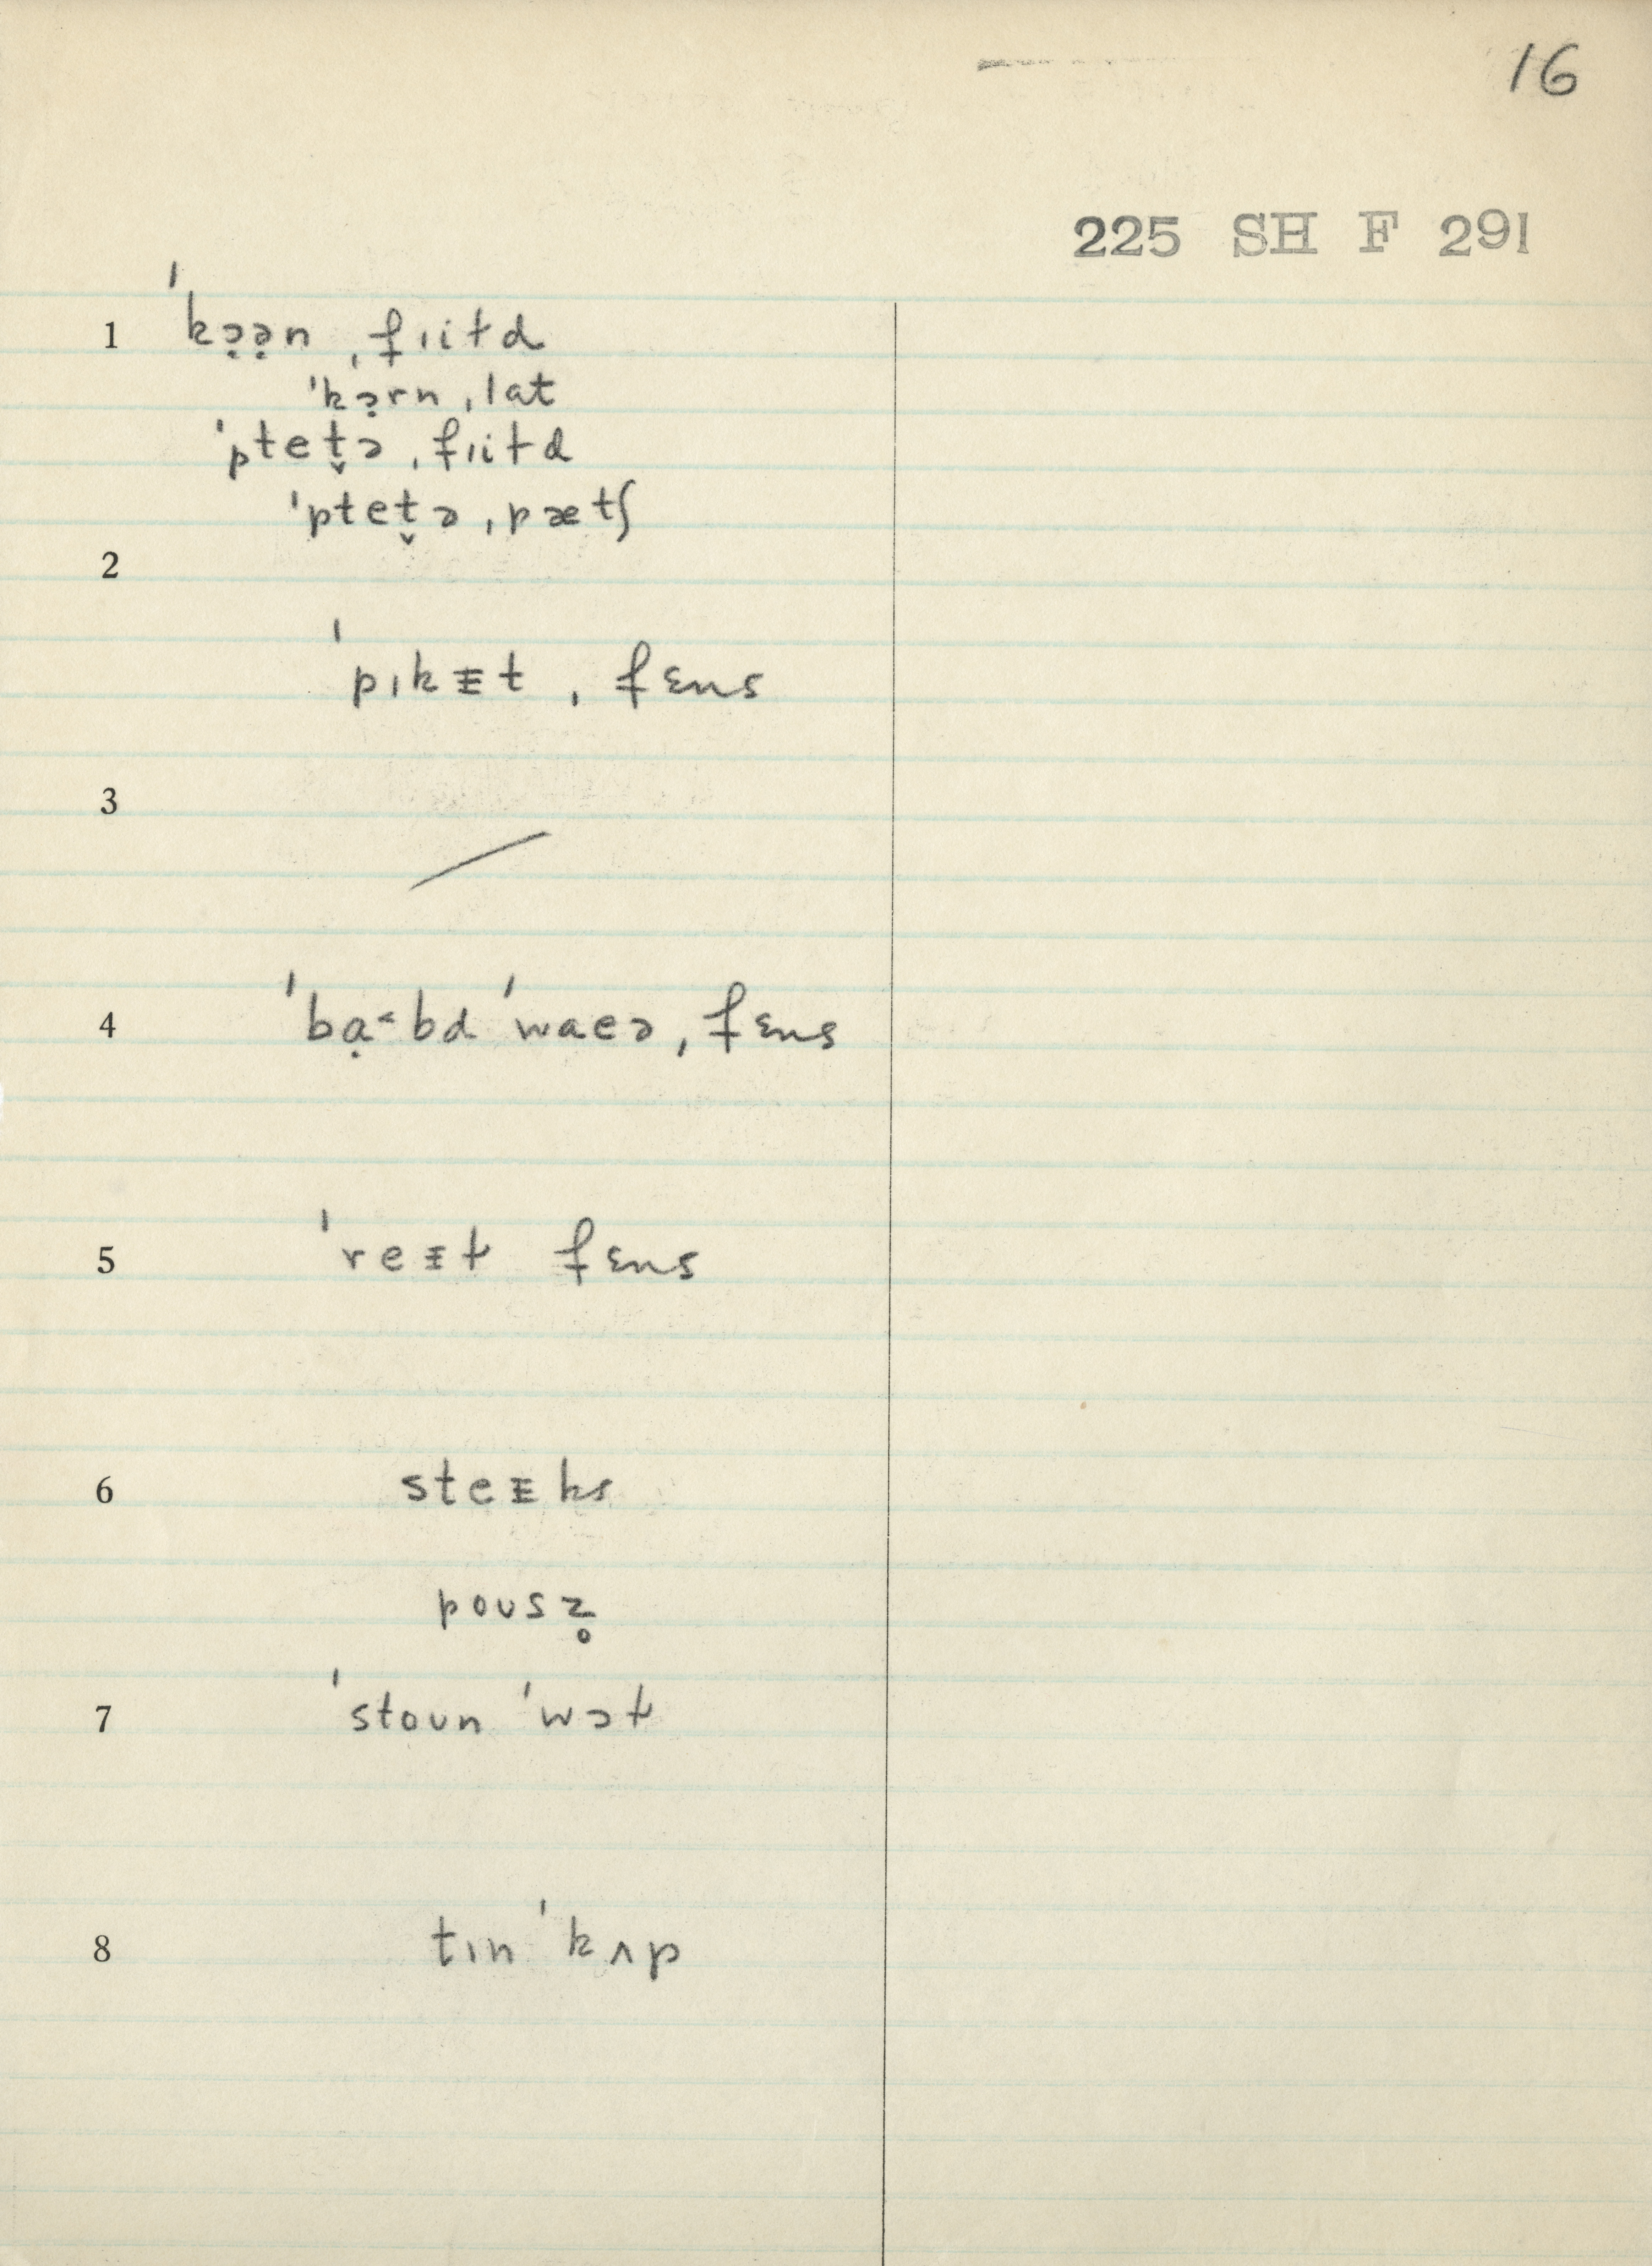 16
225 SH F 291
1 ˈkɔ̣ə̣n ˌfɪiɫd
ˈkɔ̣rn ˌlat
ˈptet̬ə ˌfɪiɫd
ˈptet̬ə ˌpætʃ
2
ˈpɪkᵻt ˌfɛns
3
4 ˈbɑ̣˂bd ˈwaeə ˌfɛns
5 ˈreᵻɫ fɛns
6 steᵻks
poʊsz̥
7 ˈstoʊn ˈwɔɫ
8 tɪn ˈkʌp